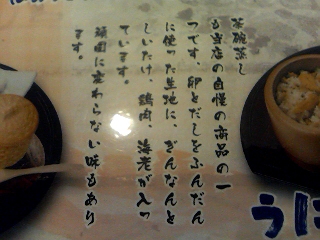 茶碗蒸し
も当店の自慢の商品の一
つです、卵とだしをふんだん
に使った生地に、ぎんなんと
しいたけ、鶏肉、海老が入っ
ています。
頑固に変わらない味もあり
ます。